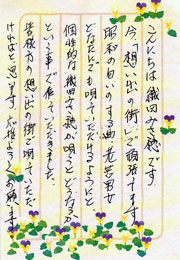 こんにちは 織田みさ穂です
今、「想い出の街」で頑張ってます
昭和の匂いのする曲、老若男女
どなたにでも唄っていただけるようにと
個性的な織田みさ穂が唄うとどうなるか
という事で作っていただきました。
皆様方も想い出の街で唄っていただ
ければと思います 応援よろしくお願いします